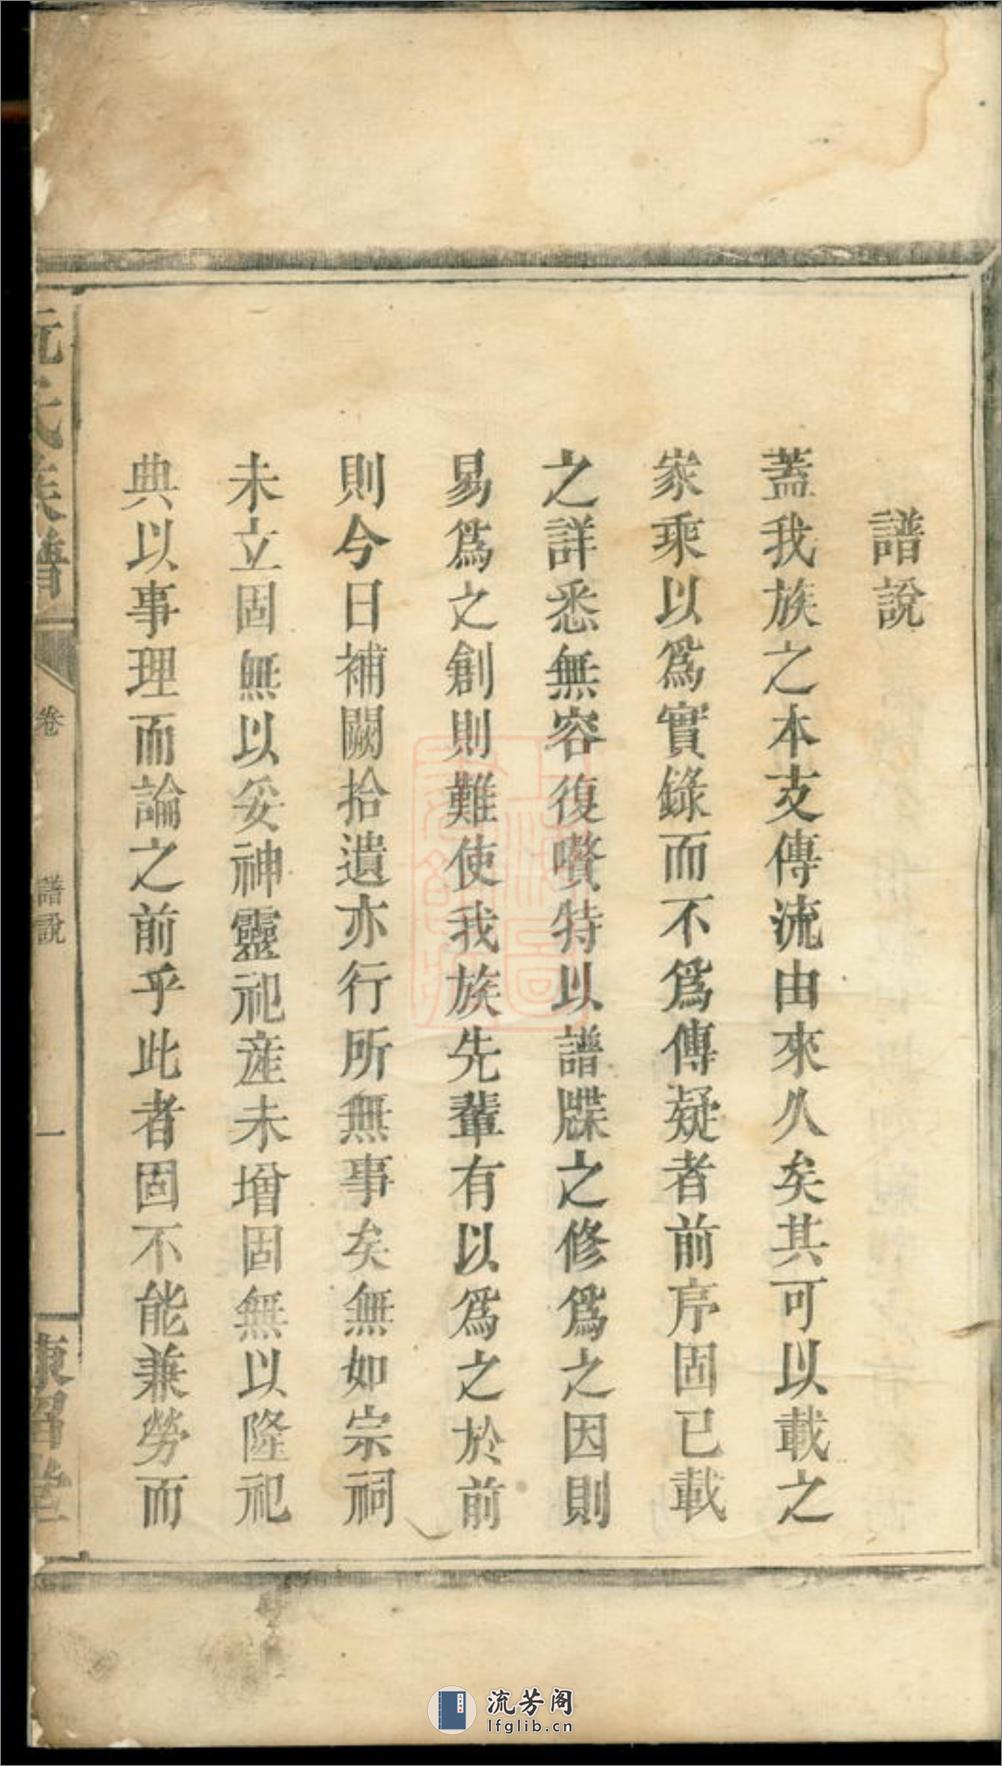 譜說
蓋我族之本支傳流由來久矣其可以載之
家乘以爲實錄而不爲傳疑者前序固已載
之詳悉無容復贅特以譜牒之修爲之因則
易爲之創則難使我族先輩有以爲之於前
則今日補闕拾遺亦行所無事矣無如宗祠
未立固無以妥神靈祀產未增固無以隆祀
典以事理而論之前乎此者固不能兼勞而
阮氏族譜
卷
譜說
一
流芳阁
lfglib.cn